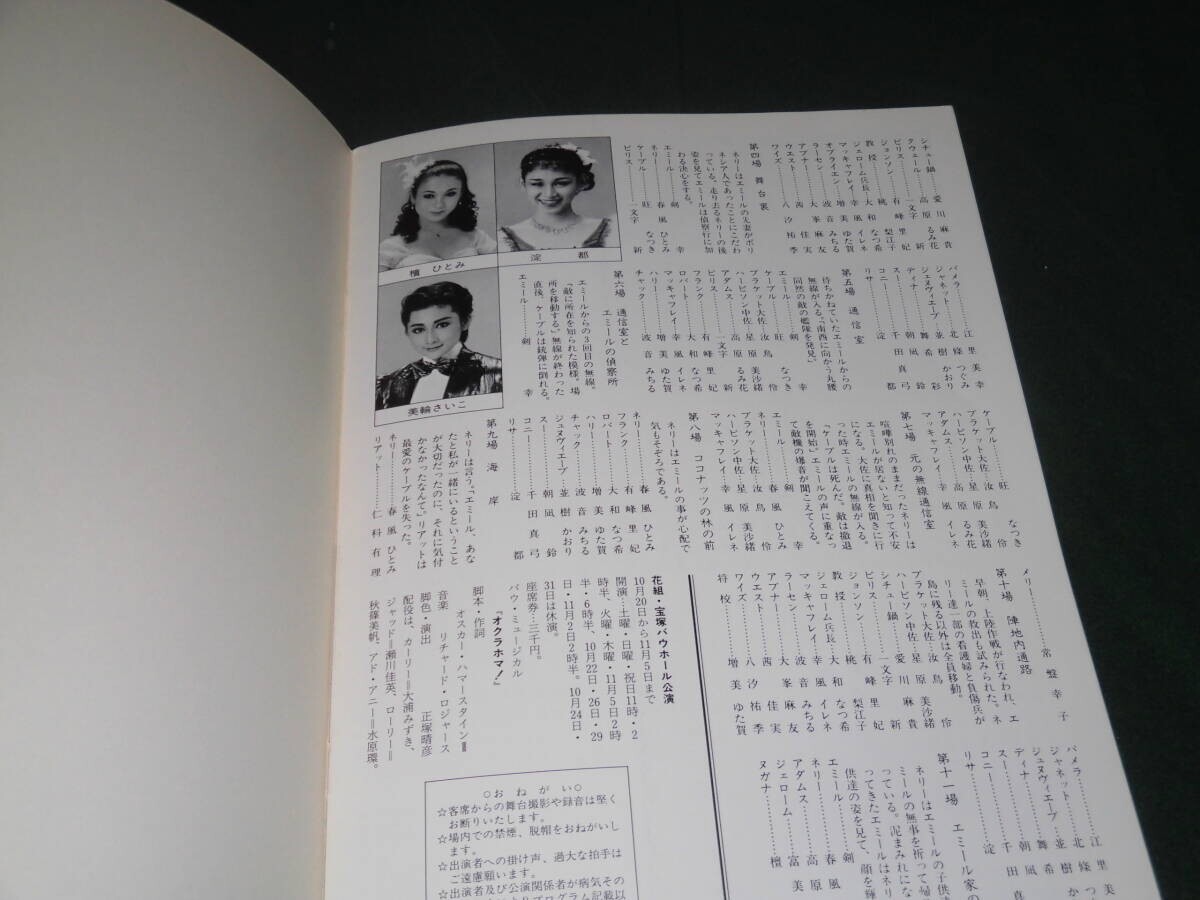 檀 ひとみ
淀 都
美輪さいこ
シチュー鍋……愛川麻貴
クウェール……高原るみ花
ビリス……一文字 新
ジョンソン……有峰里妃
教授……桃 梨江子
ジェローム兵長…大和なつ希
マッキャフレイ…幸風イレネ
オブライエン…増美ゆた賀
ラーセン……波音みちる
アブナー……大峯麻友
ウエスト……茜 佳実
ワイズ……八汐祐季
第四場 舞台裏
ネリーはエミールの先妻がポリ
ネシア人であったことにこだわ
っている。走り去るネリーの後
姿を見てエミールは偵察行に加
わる決心をする。
エミール……剣 幸
ネリー……春風ひとみ
ケーブル……旺 なつき
ビリス……一文字 新
パメラ……江里美幸
ジャネット……北條つぐみ
ジュヌヴィエーブ…並樹かおり
ディナ……舞希 彩
スー……朝凪 鈴
コニー……千田真弓
リサ……淀 都
第五場 通信室
待ちかねていたエミールからの
無線が入る。「南西に向かう丸腰
同然の敵の艦隊を発見」
エミール……剣 幸
ケーブル……旺 なつき
ブラケット大佐…汝鳥 伶
ハービソン中佐…星原美沙緒
アダムス……高原るみ花
ビリス……一文字 新
フランク……有峰里妃
ロバート……大和なつ希
マッキャフレイ…幸風イレネ
ハリー……増美ゆた賀
チャック……波音みちる
第六場 通信室と
エミールの偵察所
エミールからの3回目の無線。
「敵に所在を知られた模様。場
所を移動する」無線が終わった
直後、ケーブルは銃弾に倒れる。
エミール……剣 幸
ケーブル……旺 なつき
ブラケット大佐…汝鳥 伶
ハービソン中佐…星原美沙緒
アダムス……高原るみ花
マッキャフレイ…幸風イレネ
第七場 元の無線通信室
喧嘩別れのままだったネリーは
エミールが居ないと知って不安
になる。大佐に真相を聞きに行
った時エミールの無線が入る。
「ケーブルは死んだ。敵は撤退
を開始」エミールの声に重なっ
て敵機の爆音が聞こえてくる。
エミール……剣 幸
ネリー……春風ひとみ
ブラケット大佐…汝鳥 伶
ハービソン中佐…星原美沙緒
マッキャフレイ…幸風イレネ
第八場 ココナッツの林の前
ネリーはエミールの事が心配で
気もそぞろである。
ネリー……春風ひとみ
フランク……有峰里妃
ロバート……大和なつ希
ハリー……増美ゆた賀
チャック……波音みちる
ジュヌヴィエーブ…並樹かおり
スー……朝凪 鈴
コニー……千田真弓
リサ……淀 都
第九場 海岸
ネリーは言う。「エミール、あな
たと私が一緒にいるということ
が大切だったのに、それに気付
かなかったなんて。」リアットは
最愛のケーブルを失った。
ネリー……春風ひとみ
リアット……仁科有理
メリー……常盤幸子
第十場 陣地内通路
早朝、上陸作戦が行なわれ、エ
ミールの救出も試みられた。ネ
リー達一部の看護婦と負傷兵が
島に残る以外は全員移動。
ブラケット大佐…汝鳥 伶
ハービソン中佐…星原美沙緒
シチュー鍋……愛川麻貴
ビリス……一文字 新
ジョンソン……有峰里妃
教授……桃 梨江子
ジェローム兵長…大和なつ希
マッキャフレイ…幸風イレネ
ラーセン……波音みちる
アブナー……大峯麻友
ウエスト……茜 佳実
ワイズ……八汐祐季
将校……増美ゆた賀
花組・宝塚バウホール公演
10月20日から11月5日まで
開演…土曜・日曜・祝日11時・2
時半、火曜・木曜・11月5日2時
半・6時半、10月22日・26日・29
日・11月2日2時半。10月24日・
31日は休演。
座席券…三千円。
バウ・ミュージカル
『オクラホマ!』
脚本・作詞
オスカー・ハマースタインⅡ
音楽 リチャード・ロジャース
脚色・演出 正塚晴彦
配役は、カーリー=大浦みずき、
ジャッド=瀬川佳英、ローリー=
秋篠美帆、アド・アニー=水原環。
パメラ……江里美
ジャネット……北條つ
ジュヌヴィエーブ…並樹か
ディナ……舞希
スー……朝凪
コニー……千田真
リサ……淀
第十一場 エミール家の
ネリーはエミールの子供達
ミールの無事を祈って帰
っている。泥まみれにな
ってきたエミールはネリ
供達の姿を見て、顔を輝
エミール……剣
ネリー……春風
アダムス……高原
ジェローム……富美
ヌガナ……檀
○おねがい○
☆客席からの舞台撮影や録音は堅く
お断りいたします。
☆場内での禁煙、脱帽をおねがいし
ます。
☆出演者への掛け声、過大な拍手は
ご遠慮願います。
☆出演者及び公演関係者が病気その
プログラム記載以